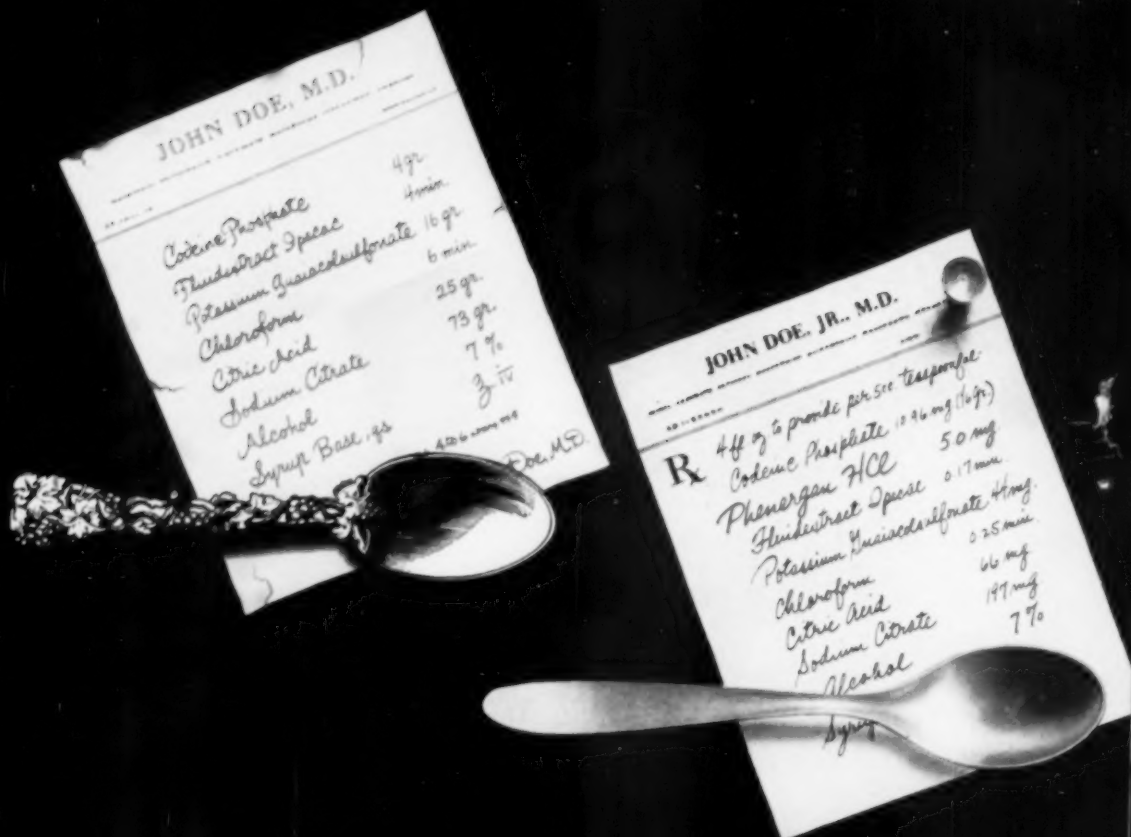 JOHN DOE, M.D.
Codeine Phosphate 4 gr.
Fluidextract Ipecac 4 min.
Potassium Guaiacolsulfonate 16 gr.
Chloroform 6 min.
Citric Acid 25 gr.
Sodium Citrate 73 gr.
Alcohol 7 %
Syrup Base, qs ℥ iv
Doe, M.D.
JOHN DOE, JR., M.D.
Rx 4 fl oz to provide per 5cc teaspoonful
Codeine Phosphate 10.96 mg (1/6 gr)
Phenergan HCl 5.0 mg.
Fluidextract Ipecac 0.17 min.
Potassium Guaiacolsulfonate 44 mg.
Chloroform 0.25 min.
Citric Acid 66 mg
Sodium Citrate 197 mg
Alcohol 7 %